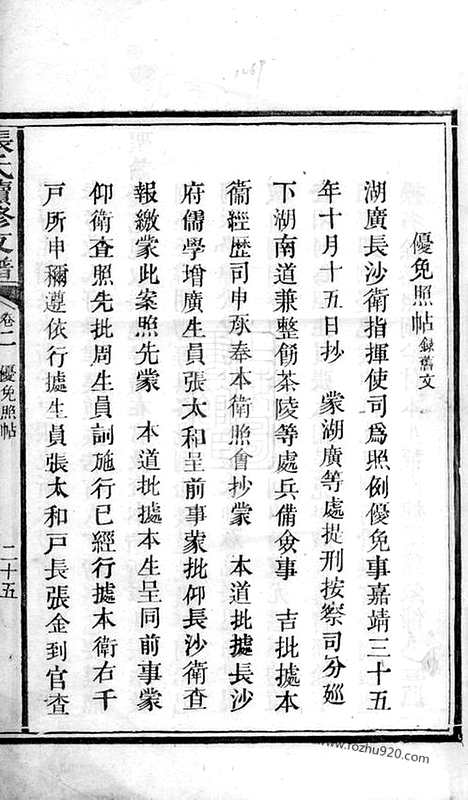 優免照帖 錄舊文
湖廣長沙衛指揮使司爲照例優免事嘉靖三十五
年十月十五日抄　蒙湖廣等處提刑按察司分廵
下湖南道兼整飭茶陵等處兵備僉事　吉批據本
衞經歷司申承奉本衛照會抄蒙　本道批據長沙
府儒學增廣生員張太和呈前事蒙批仰長沙衛查
報繳蒙此案照先蒙　本道批據本生呈同前事蒙
仰衛查照先批周生員訓施行已經行據本衛右千
戸所申稱遵依行據生員張太和戸長張金到官查
張氏續修支譜
卷二
優免照帖
二十五
www.fozhu920.com